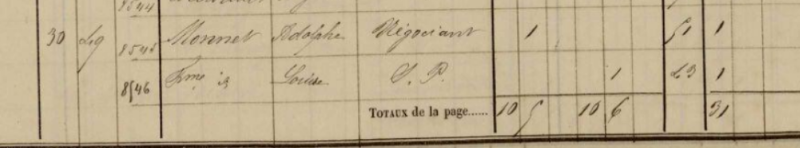 8544
30 8545 Monnet Adolphe Négociant 1 51 1
8546 Fme id Louise S. P. 1 43 1
TOTAUX de la page...... 10 5 10 6 31